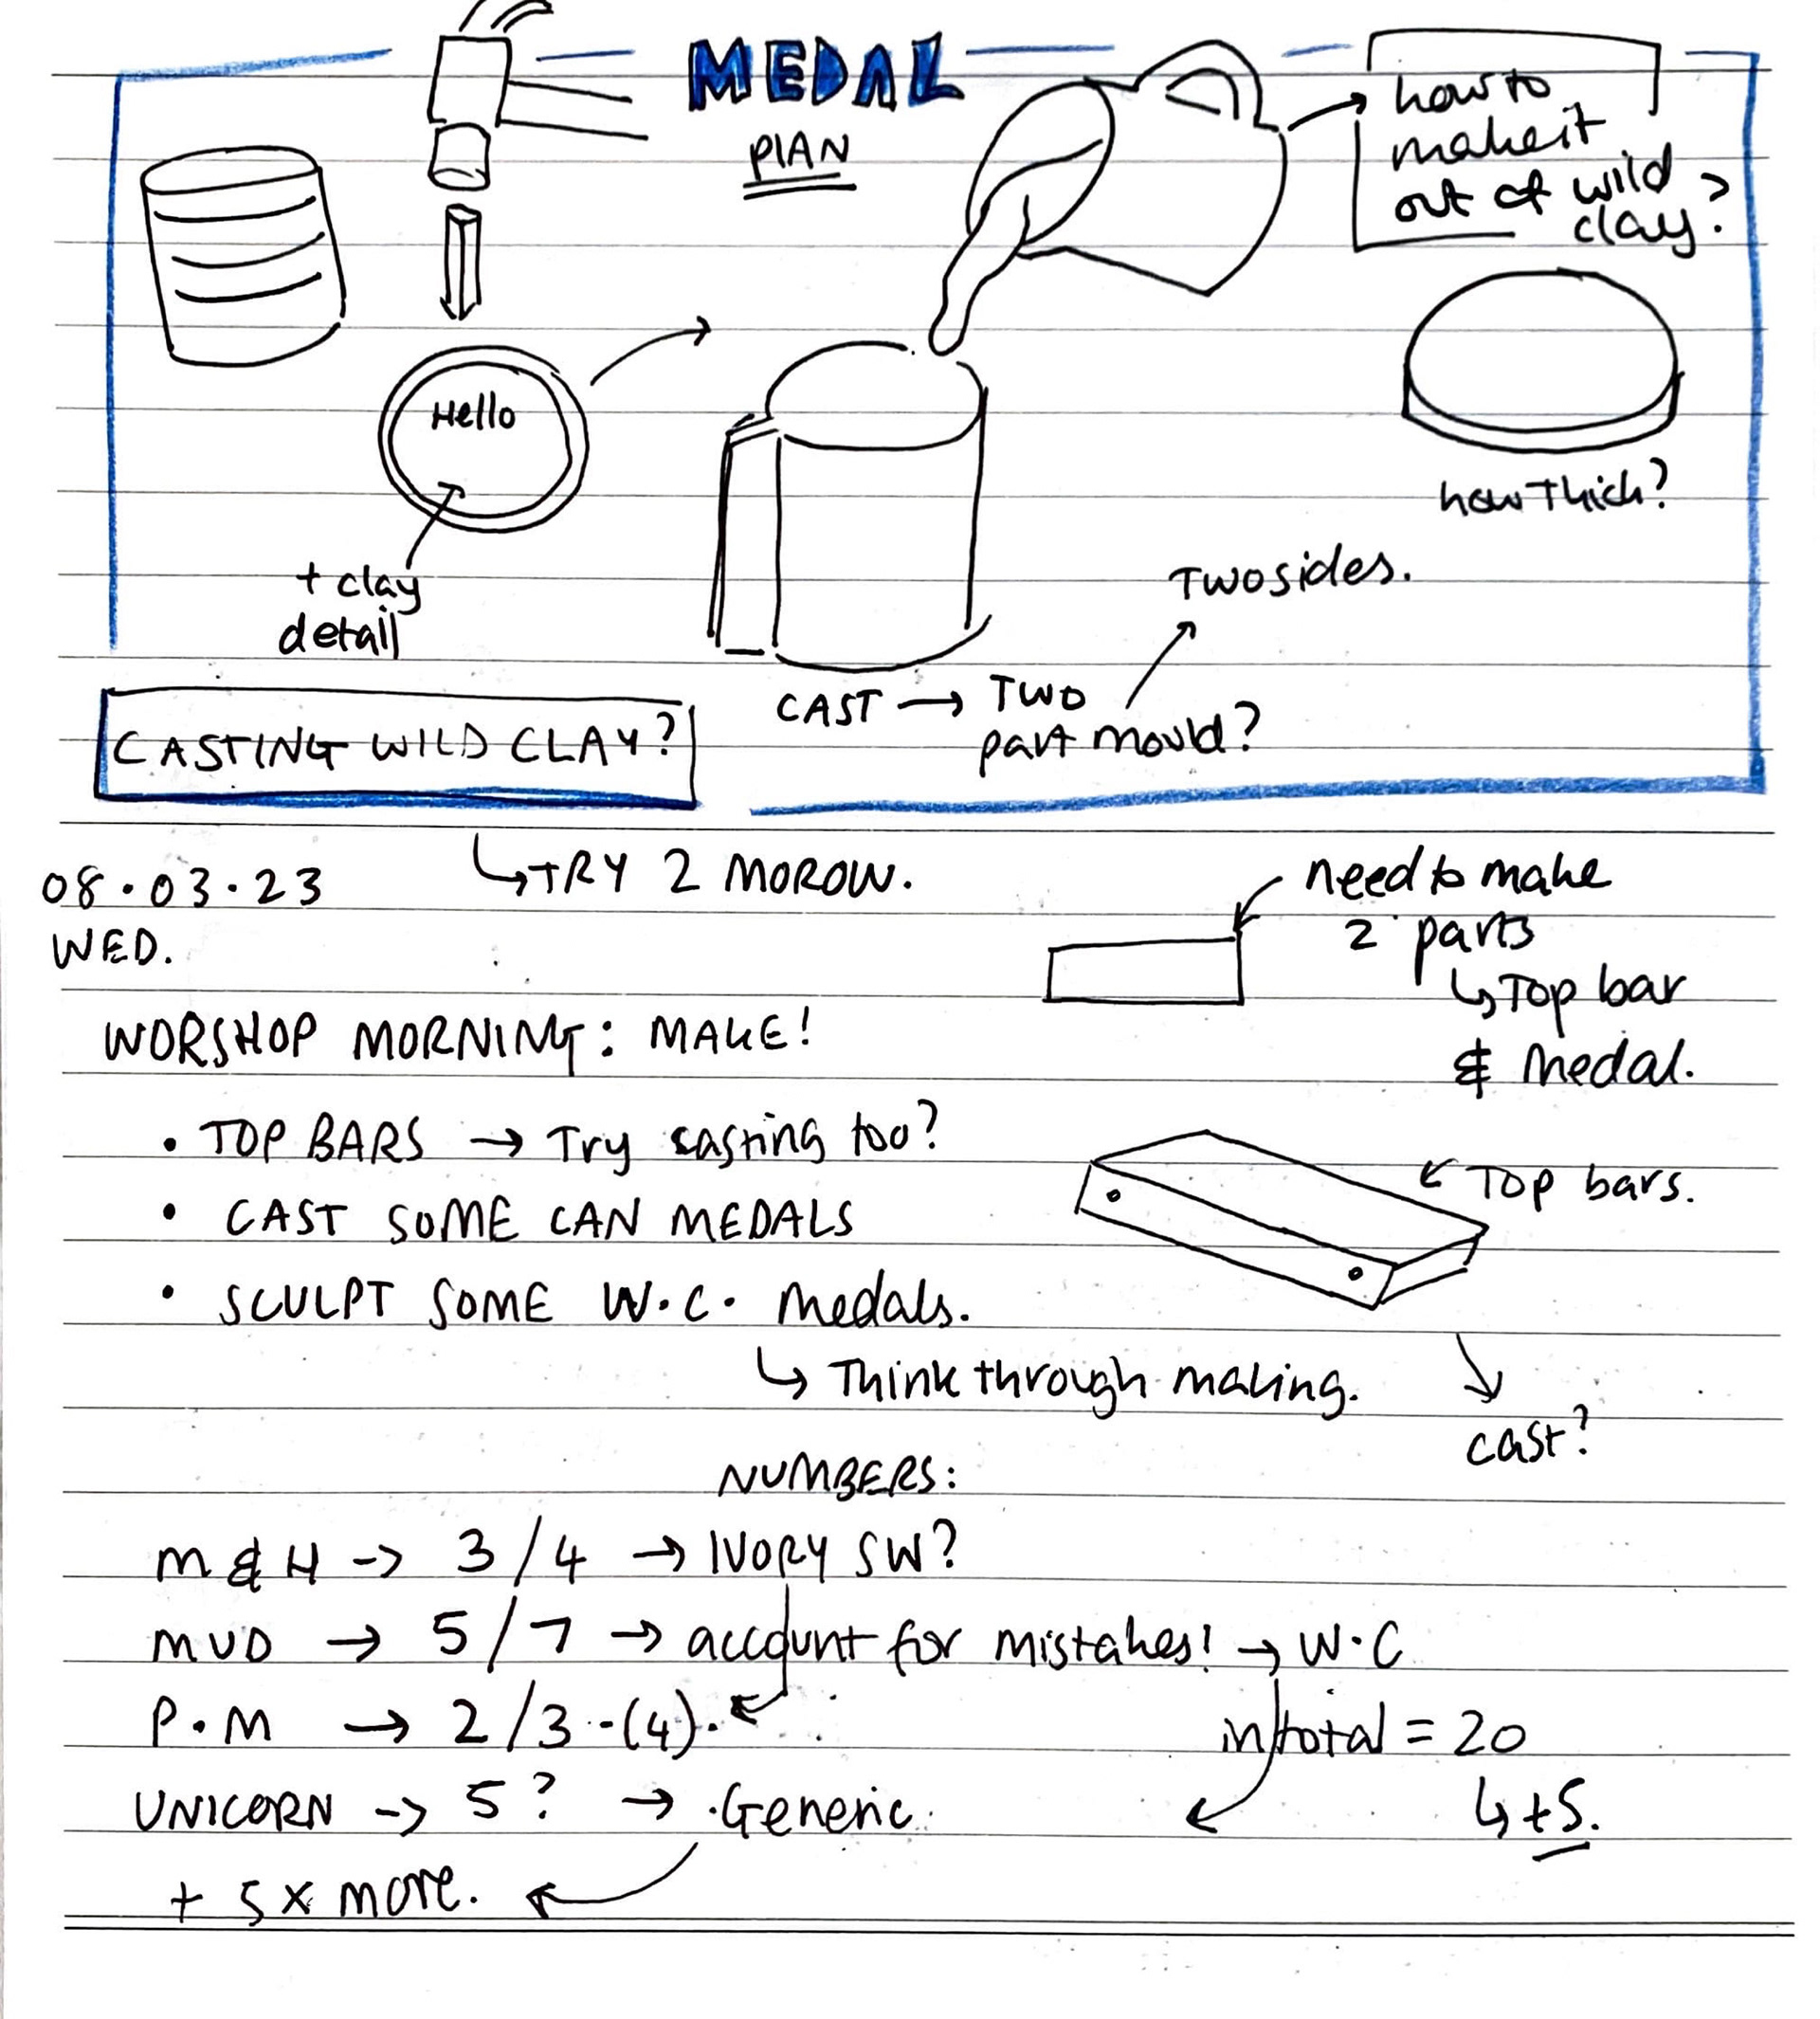 MEDAL
PLAN
how to
make it
out of wild
clay?
Hello
how thick?
+ clay
detail
Two sides.
CAST → TWO
part mould?
CASTING WILD CLAY?
↳ TRY 2 MOROW.
08.03.23
WED.
need to make
2 parts
↳ Top bar
& medal.
WORSHOP MORNING: MAKE!
• TOP BARS → Try casting too?
← Top bars.
• CAST SOME CAN MEDALS
• SCULPT SOME W.C. medals.
↳ Think through making.
cast?
NUMBERS:
M & H -> 3/4 → IVORY SW?
MUD → 5/7 → account for mistakes! → W.C
P.M → 2/3 -(4).
in total = 20
UNICORN -> 5? → Generic.
↳ +5.
+ 5x more.